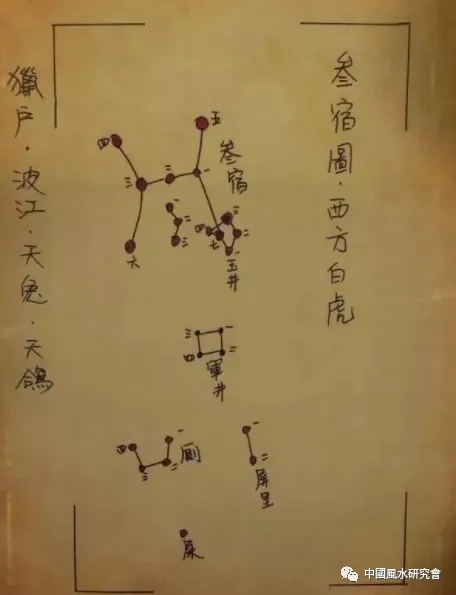 叁宿圖·西方白虎
獵戶·波江·天兔·天鴿
五
四
叁宿
三
二
一
一
二
三
六
三
四
二
七
一
玉井
三
一
四
二
軍井
一
四
三
二
厠
一
二
屏星
屎
中國風水研究會